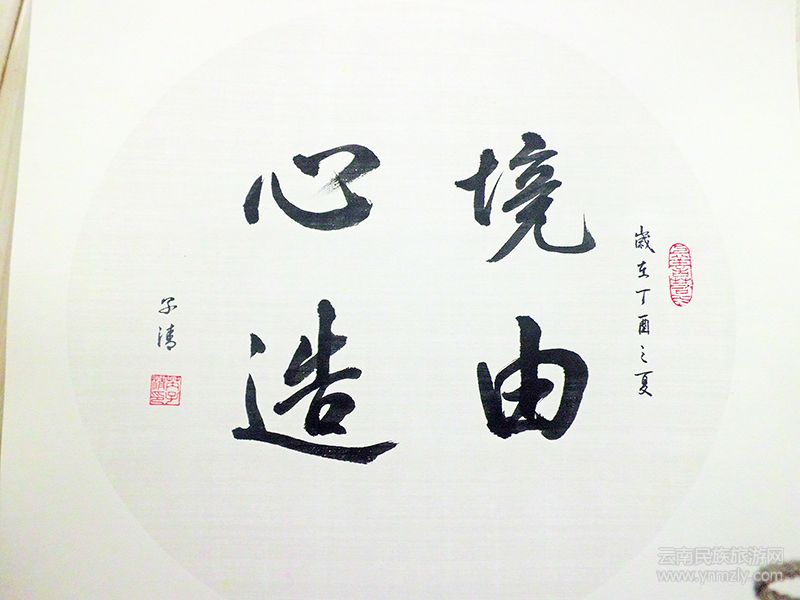 歲在丁酉之夏
境由
心造
子清
云南民族旅游网
www.ynmzly.com